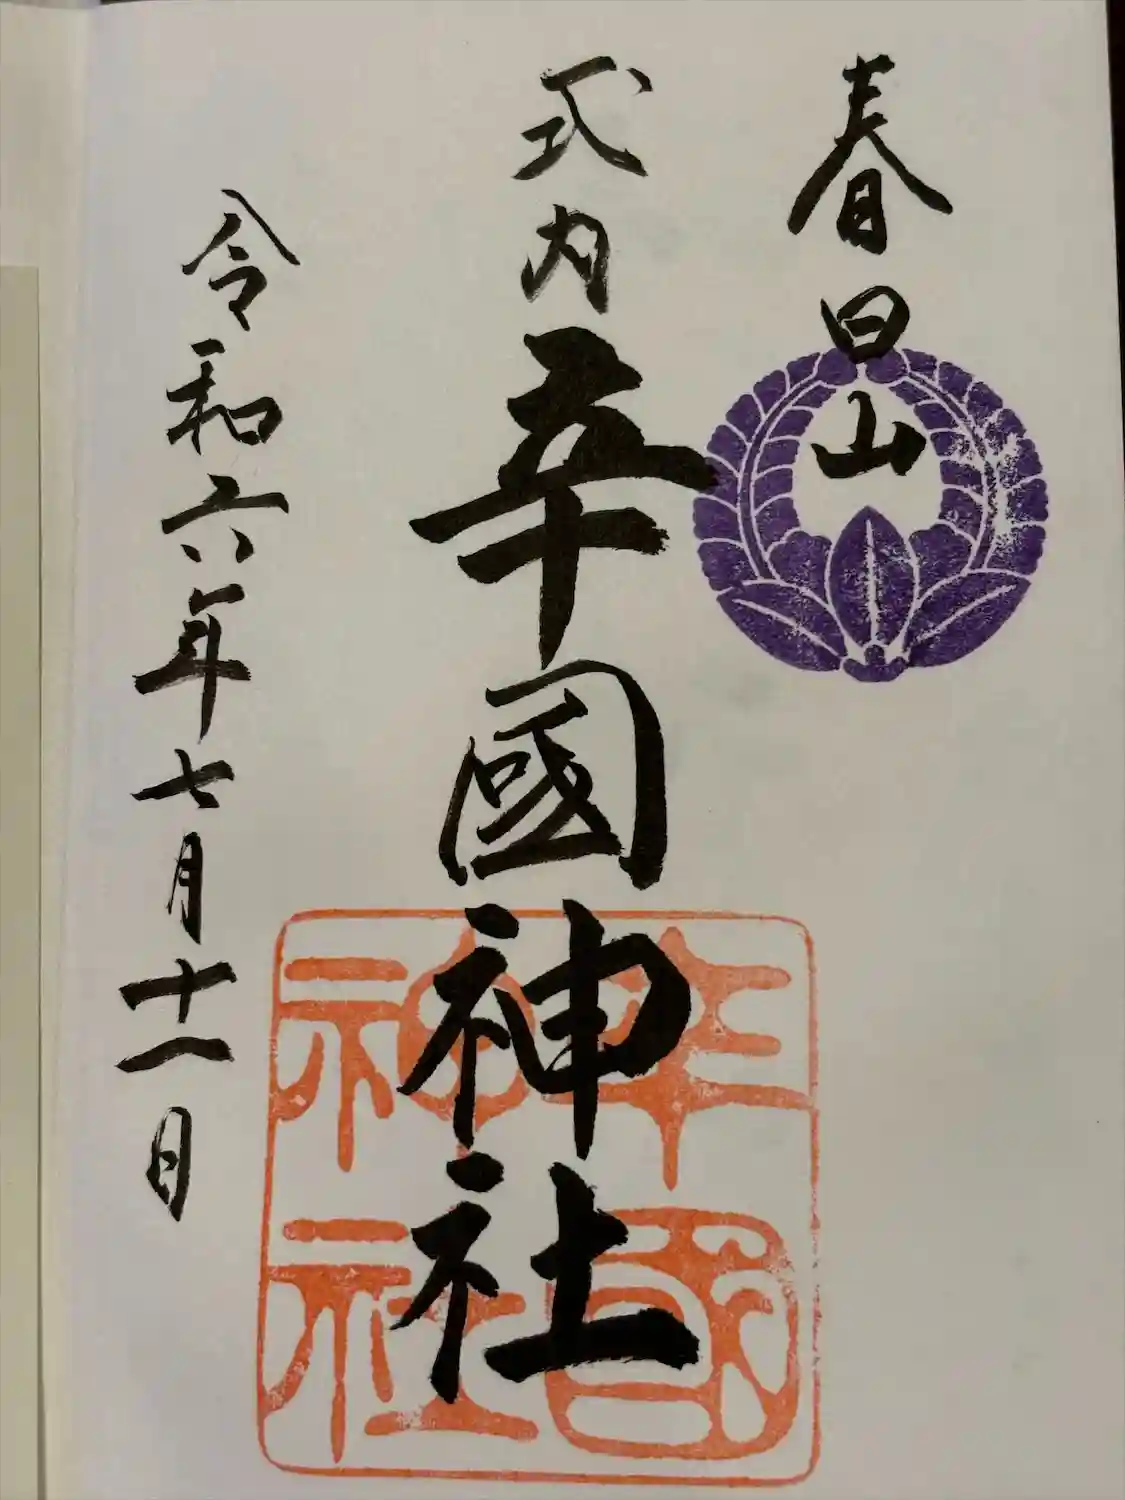 春日山
式内 辛國神社
辛國神社
令和六年七月十一日